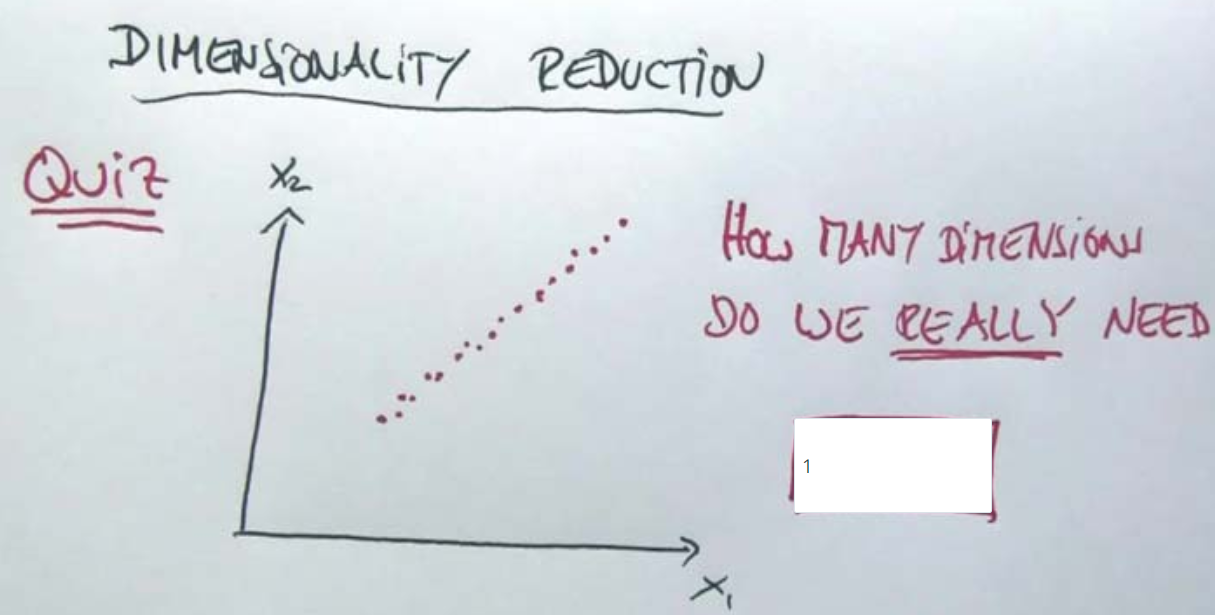 DIMENSIONALITY REDUCTION
QUIZ
X2
HOW MANY DIMENSIONS
DO WE REALLY NEED
1
X1